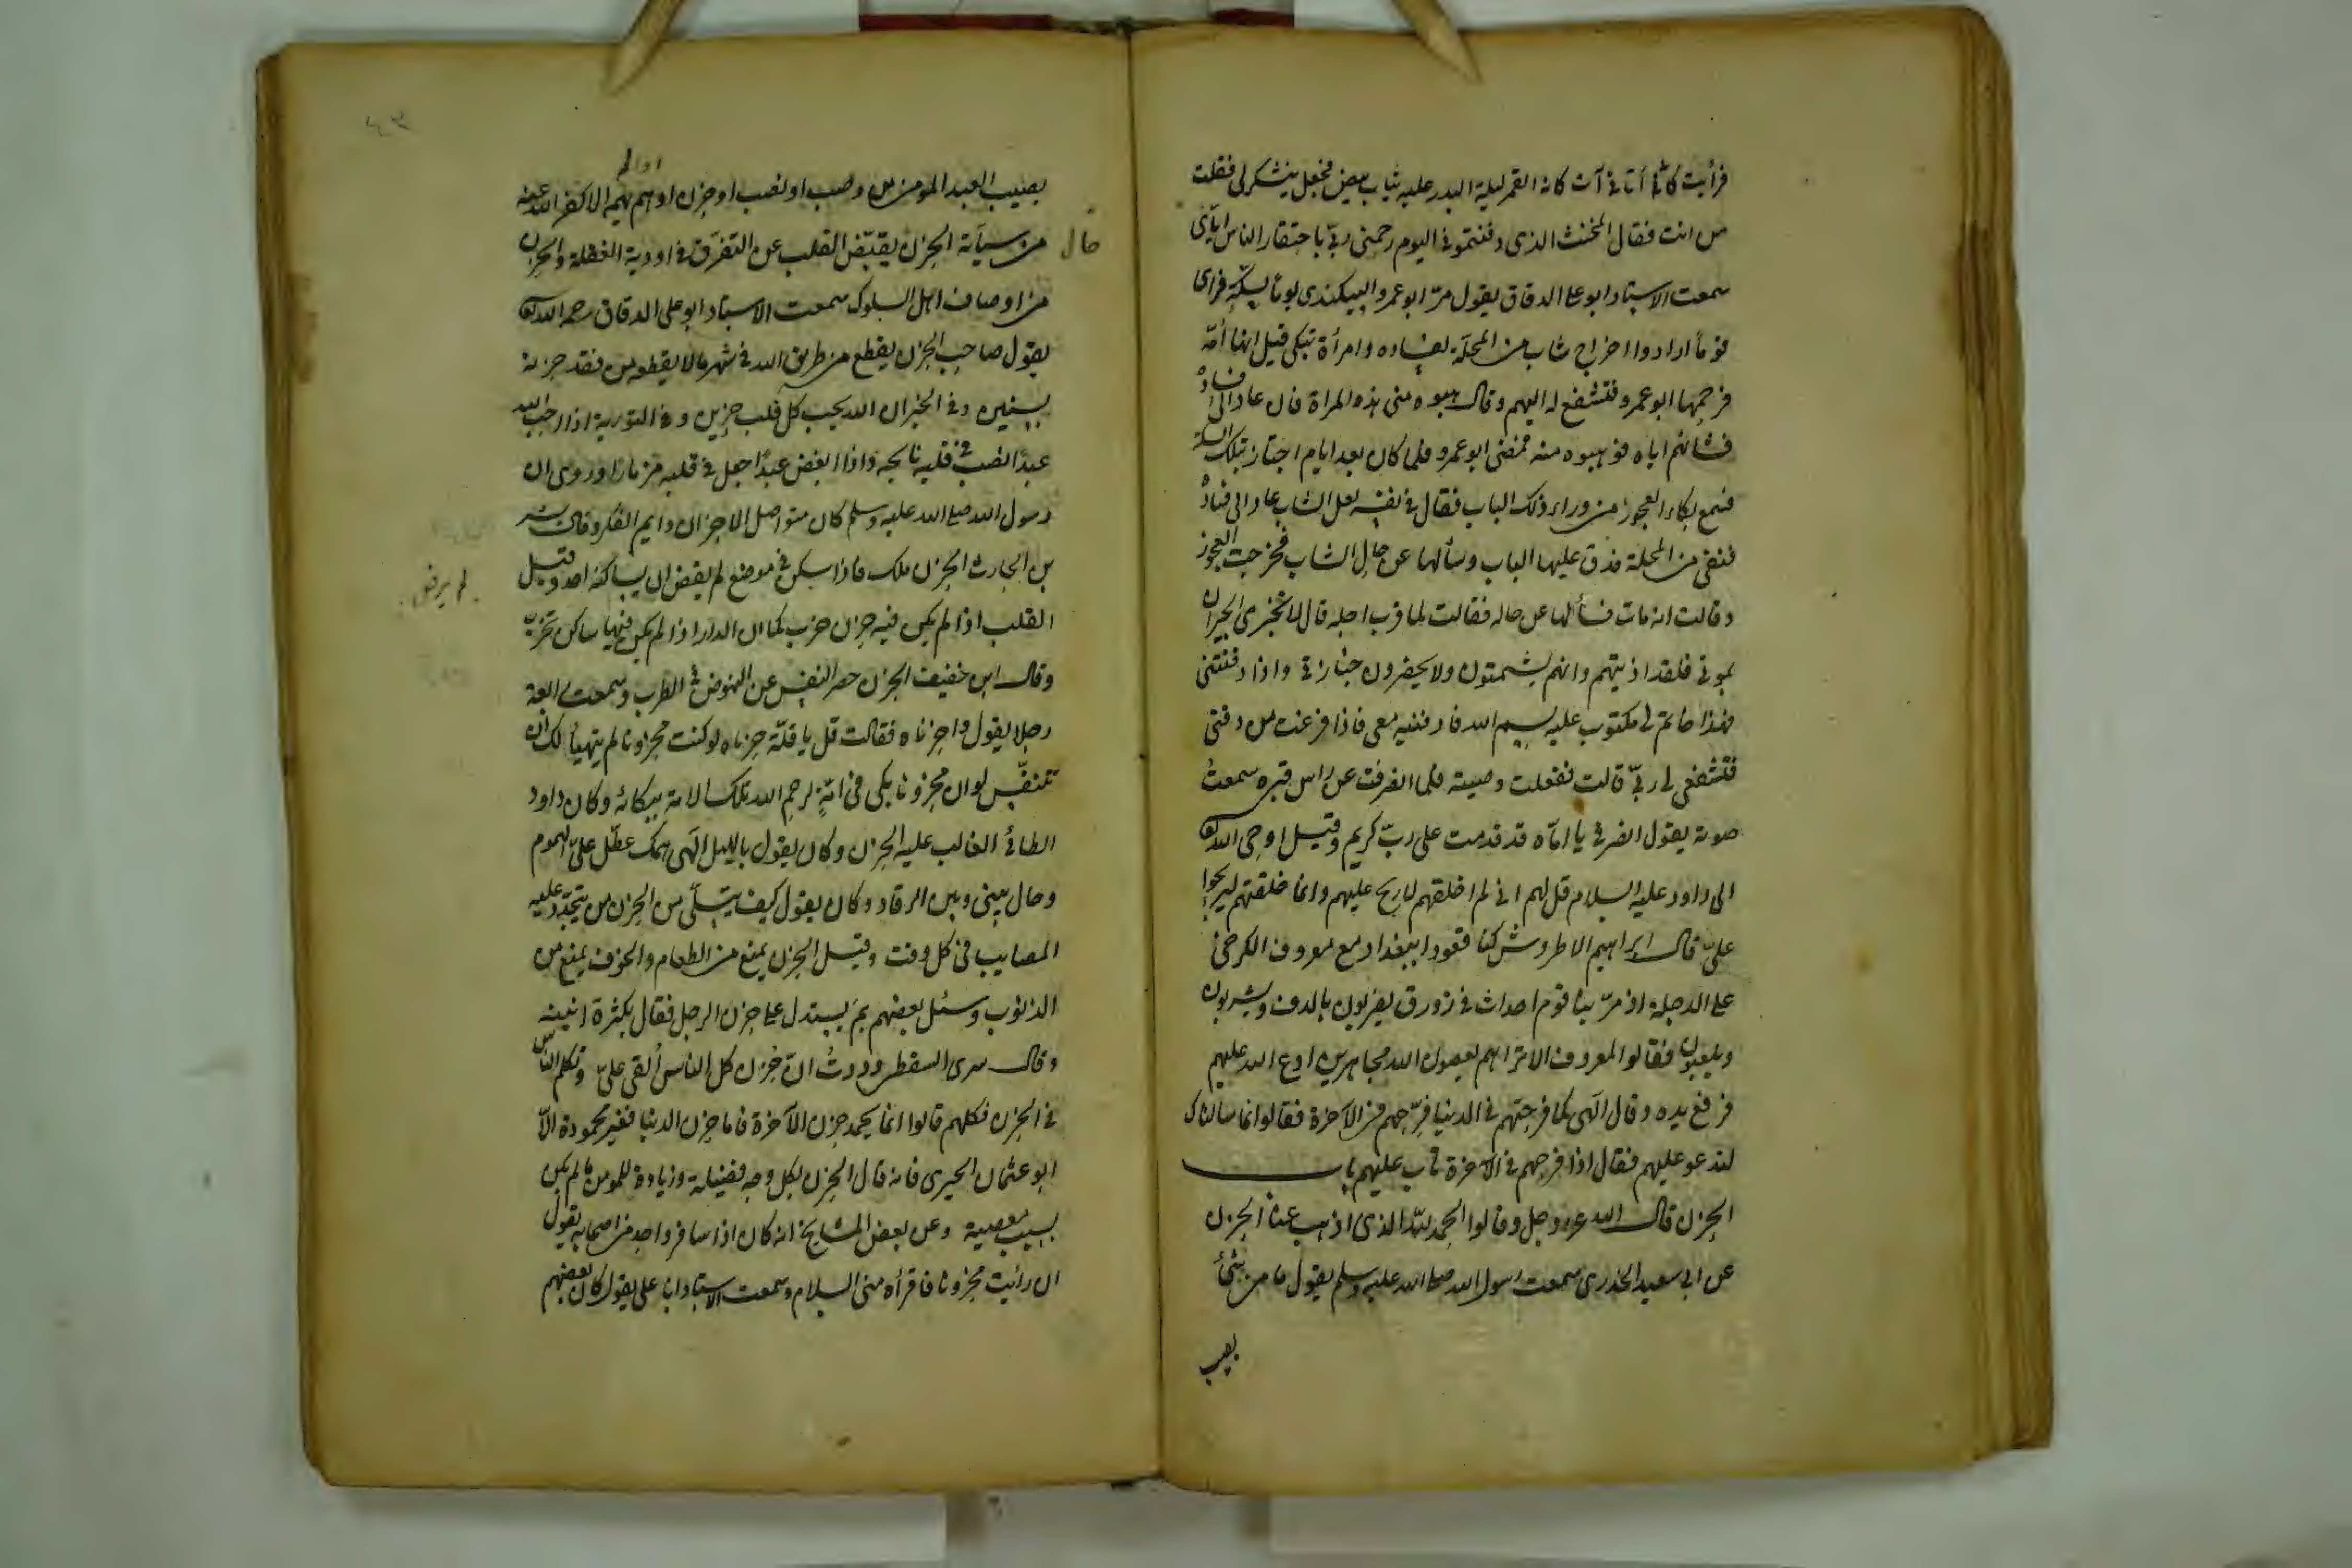 فرأيت كأنى أتانى آت كانه القمر ليلة البدر عليه ثياب بيض فجعل يتشكر لى فقلت
من انت فقال المخنث الذى دفنتمونى اليوم رحمنى ربى باحتقار الناس اياى
سمعت الاستاد ابو على الدقاق يقول مر ابو عمرو البيكندى يوما بسكة فراى
قوما ارادوا اخراج شاب من المحلة لفساده وامرأة تبكى قيل انها أمه
فرحمها ابو عمرو فتشفع له اليهم وقال هبوه منى هذه المرة فان عاد الى فساده
فشأنكم اياه فوهبوه منه فمضى ابو عمرو فلما كان بعد ايام اجتاز بتلك السكة
فسمع بكاء العجوز من وراء ذلك الباب فقال فى نفسه لعل الشاب عاد الى فساده
فنفى من المحلة فدق عليها الباب وسألها عن حال الشاب فخرجت العجوز
وقالت انه مات فسألها عن حاله فقالت لما قرب اجله قال لا تخبرى الجيران
بموتى فلقد اذيتهم وانهم يشمتون ولا يحضرون جنازتى واذا دفنتنى
فهذا خاتم لى مكتوب عليه بسم الله فادفنيه معى فاذا فرغت من دفنى
فتشفعى لى ربى قالت ففعلت وصيته فلما انصرفت عن راس قبره سمعت
صوته يقول انصرفى يا اماه قد قدمت على رب كريم وقيل اوحى الله تعالى
الى داود عليه السلام قل لهم انى لم اخلقهم لاربح عليهم وانما خلقتهم ليربحوا
على قال ابراهيم الاطروش كنا قعودا ببغداد مع معروف الكرخى
على الدجلة اذ مر بنا قوم احداث فى زورق يضربون بالدف ويشربون
ويلعبون فقالوا لمعروف الا تراهم يعصون الله مجاهرين ادع الله عليهم
فرفع يده وقال الهى كما فرحتهم فى الدنيا فرحهم فى الآخرة فقالوا انما سالناك
لتدعو عليهم فقال اذا فرحهم فى الآخرة تاب عليهم باب
الحزن قال الله عز وجل وقالوا الحمد لله الذى اذهب عنا الحزن
عن ابى سعيد الخدرى سمعت رسول الله صلى الله عليه وسلم يقول ما من شئ
يصيب
او الم
يصيب العبد المومن من وصب او نصب او حزن او هم يهمه الا كفر الله عنه
من سيآته الحزن يقبض القلب عن التفرق فى اودية الغفلة والحزن
حال
من اوصاف اهل السلوك سمعت الاستاد ابو على الدقاق رحمه الله تعالى
يقول صاحب الحزن يقطع من طريق الله فى شهر ما لا يقطعه من فقد حزنه
بسنين وفى الخبر ان الله يحب كل قلب حزين وفى التورية اذا احب الله
عبدا نصب فى قلبه نايحة واذا ابغض عبدا جعل فى قلبه مزمارا وروى ان
رسول الله صلى الله عليه وسلم كان متواصل الاحزان دايم الفكر وقال بشر
بن الحارث الحزن ملك فاذا سكن فى موضع لم يقض ان يساكنه احد وقيل
لم يرض
القلب اذا لم يكن فيه حزن خرب كما ان الدار اذا لم يكن فيها ساكن تخرب
وقال ابن خفيف الحزن حصر النفس عن النهوض فى الطرب وسمعت رابعة
رجلا يقول واحزناه فقالت قل يا قلة حزناه لو كنت محزونا لم يتهيأ لك ان
تتنفس لو ان محزونا بكى فى امة لرحم الله تلك الامة ببكائه وكان داود
الطائى الغالب عليه الحزن وكان يقول بالليل الهى همك عطل على الهموم
وحال بينى وبين الرقاد وكان يقول كيف يتسلى من الحزن من يتجدد عليه
المصايب فى كل وقت وقيل الحزن يمنع من الطعام والخوف يمنع من
الذنوب وسئل بعضهم بم يستدل على حزن الرجل فقال بكثرة انينه
وقال سرى السقطى وددت ان حزن كل الناس ألقى على وتكلم الناس
فى الحزن فكلهم قالوا انما يحمد حزن الآخرة فاما حزن الدنيا فغير محمودة الا
ابو عثمان الحيرى فانه قال الحزن بكل وجه فضيلة وزيادة للمومن ما لم يكن
بسبب معصية وعن بعض المشايخ انه كان اذا سافر واحد من اصحابه يقول
ان رائيت محزونا فاقرأه منى السلام وسمعت الاستاد ابا على يقول كان بعضهم